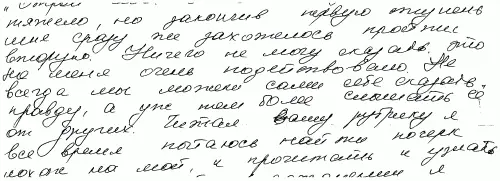 тяжело, но закончив первую ступень
мне сразу же захотелось пройти
вторую. Ничего не могу сказать, это
на меня очень подействовало. Не
всегда мы можем сами себе сказать
правду, а уж тем более слышать её
от других. Читая Вашу рубрику я
все время пытаюсь найти почерк
похож на мой, и прочитать и узнать